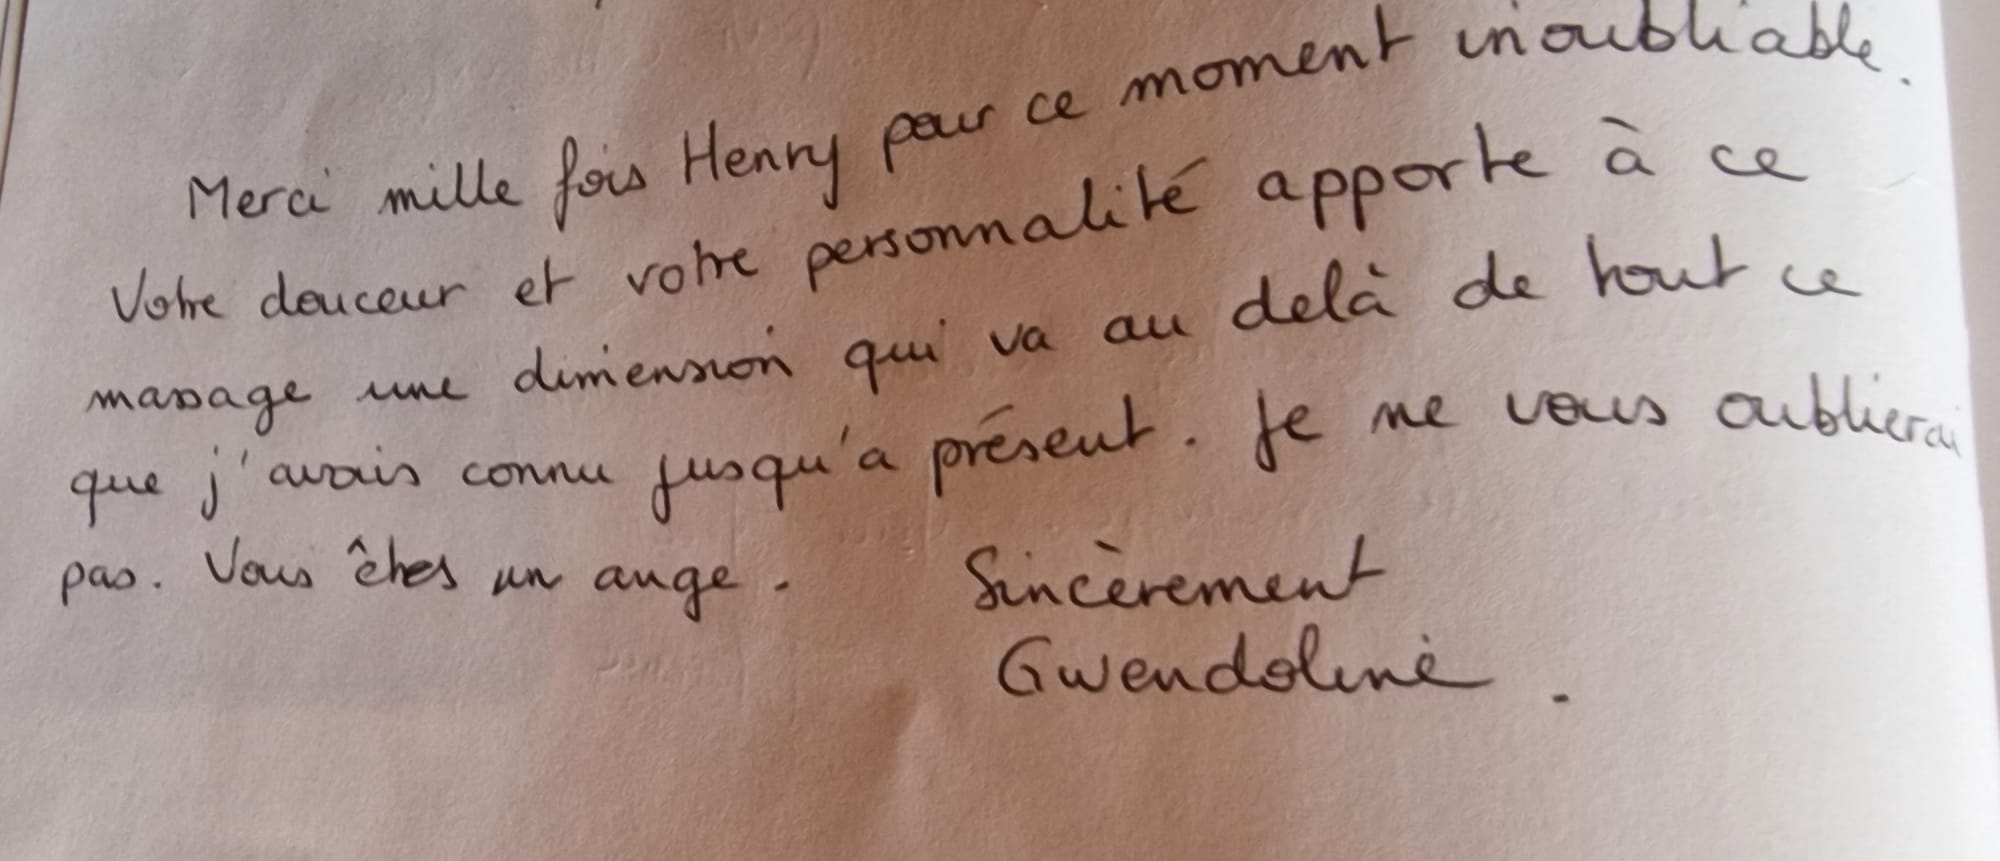 Merci mille fois Henry pour ce moment inoubliable.
Votre douceur et votre personnalité apporte à ce
massage une dimension qui va au delà de tout ce
que j'avais connu jusqu'a présent. Je ne vous oublierai
pas. Vous êtes un ange. Sincèrement
Gwendoline.